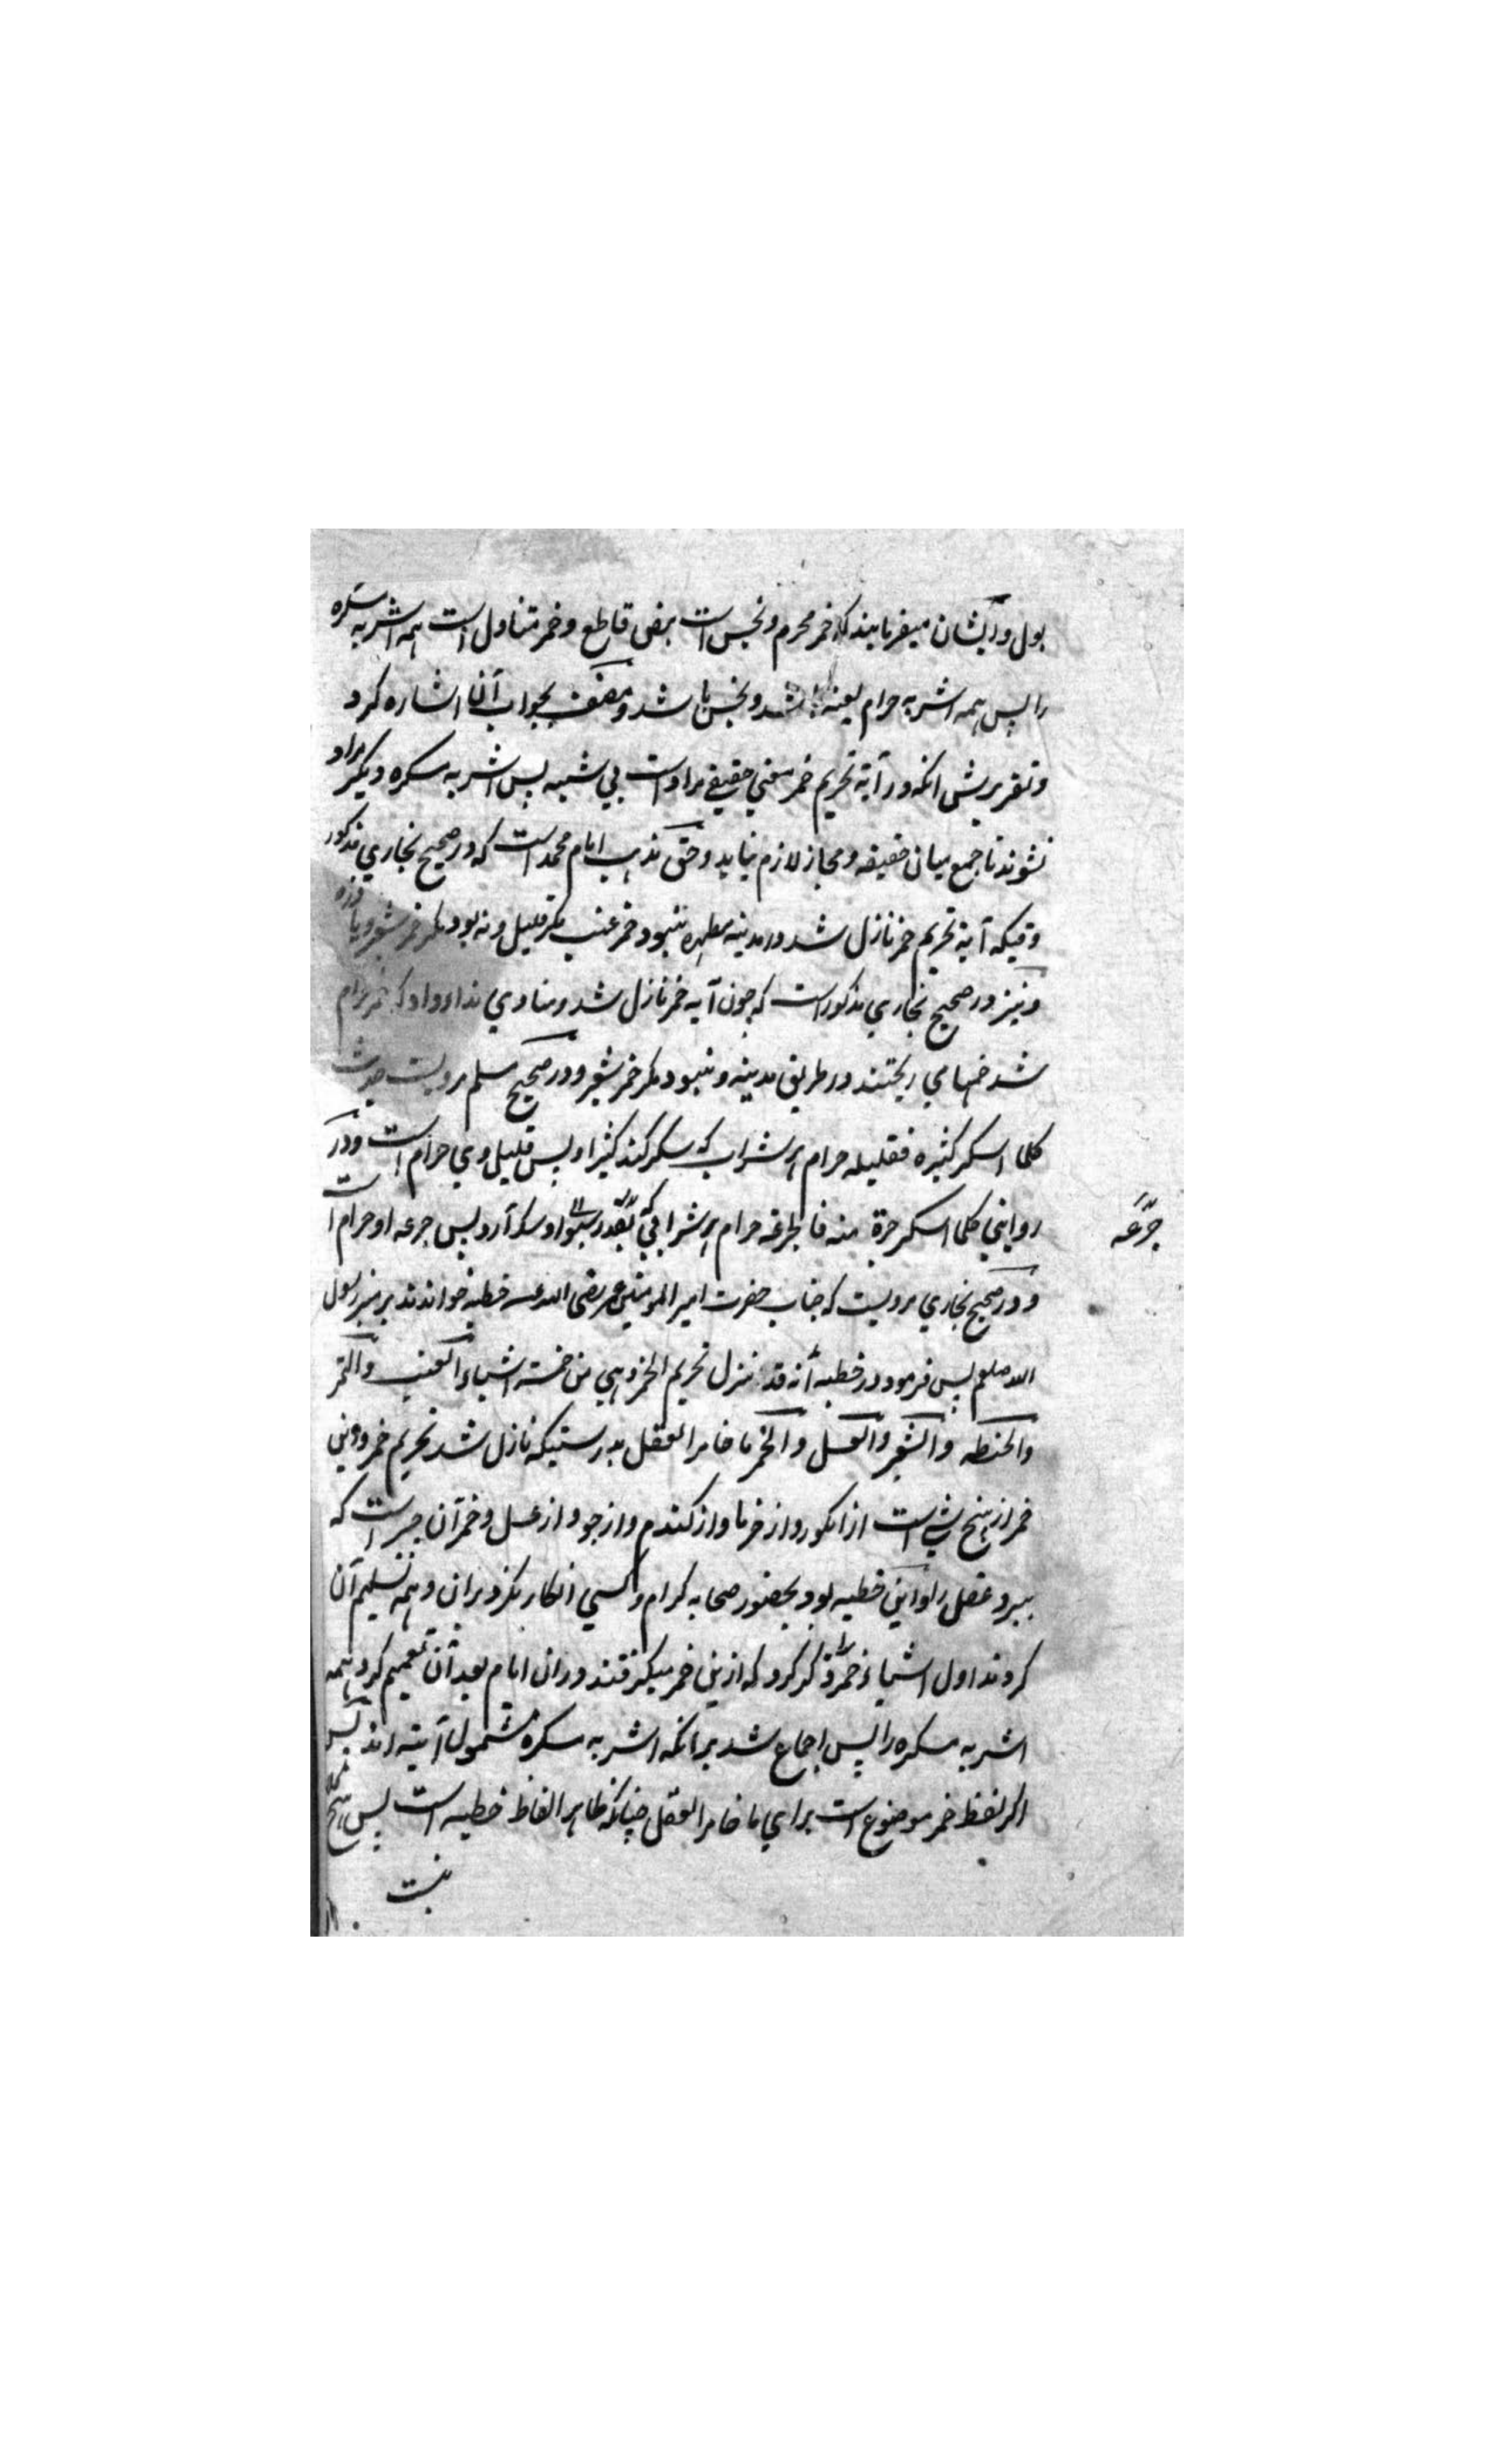 بول و ایشان میفرمایند که خمر محرم و نجس است بنص قاطع و خمر متناول است همه اشربه مسکره
را پس همه اشربه حرام لعینه باشد و نجس باشد و مصنف بجواب آنها اشاره کرد
و تقریرش انکه در آیة تحریم خمر معنی حقیقی مراد است بی شبیه پس اشربه مسکره دیکر مراد
نشوند تا جمع میان حقیقه و مجاز لازم نیاید و حق مذهب امام محمد است که در صحیح بخاری مذکور
وقتیکه آیة تحریم خمر نازل شد در مدینه مطهره نبود خمر عنب مکر قلیل و نه بود مکر خمر شعیر و یا
و نیز در صحیح بخاری مذکور است که چون آیه خمر نازل شد و منادی نداء داد که خمر حرام
شد خمها می ریختند در طریق مدینه و نبود مکر خمر شعیر و در صحیح مسلم مرویست حدیث
کلما اسکر کثیره فقلیله حرام هر شراب که سکر کند کثیر او پس قلیل وی حرام است و در
روایتی کلما اسکر جرة منه فالجرعه حرام هر شرابی که بقدر سبو او سکر آرد پس جرعه او حرام است
جرّعَه
و در صحیح بخاری مرویست که جناب حضرت امیر المومنین عمر رضی الله عنه خطبه خواندند بر منبر رسول
الله صلعم پس فرمود در خطبه أنه قد نزل تحریم الخمر و هی من خمسة اشیاء العنب والتمر
والحنطه والشعیر والعسل والخمر ما خامر العقل بدرستیکه نازل شد تحریم خمر و این
خمر از پنج شی است از انکور و از خرما و از کندم و از جو و از عسل و خمر آن چیز است که
ببرد عقل را و این خطبه بود بحضور صحابه کرام و کسی انکار نکرد بران و همه تسلیم آن
کردند اول اشیاء خمر را ذکر کرد که ازین خمر میکرفتند دران ایام بعد آن تعمیم کرد همه
اشربه مسکره را پس اجماع شد برانکه اشربه مسکره مشمول آیته اند پس
اکر لفظ خمر موضوع است برای ما خامر العقل چنانکه ظاهر الفاظ خطبه است پس هیچ
نیست